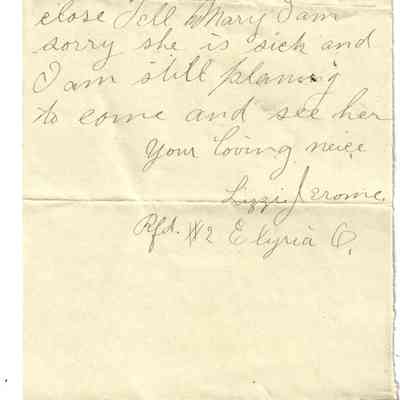 close Tell Mary I am
sorry she is sick and
I am still planing
to come and see her
Your loving neice
Lizzie Jerome
Rfd. #2 Elyria O.